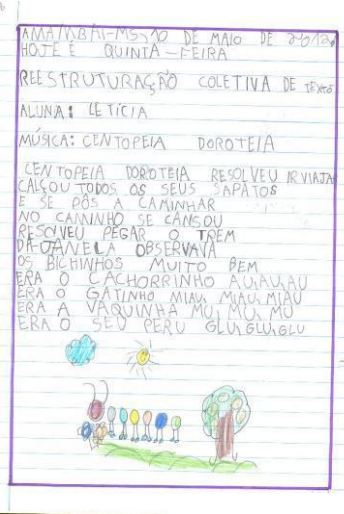 AMAMBAI-MS, 10 DE MAIO DE 2012.
HOJE É QUINTA-FEIRA
REESTRUTURAÇÃO COLETIVA DE TEXTO
ALUNA: LETÍCIA
MÚSICA: CENTOPEIA DOROTEIA
CENTOPEIA DOROTEIA RESOLVEU IR VIAJAR
CALSOU TODOS OS SEUS SAPATOS
E SE PÔS A CAMINHAR
NO CAMINHO SE CANSOU
RESOLVEU PEGAR O TREM
DA JANELA OBSERVAVA
OS BICHINHOS MUITO BEM
ERA O CACHORRINHO AU,AU,AU
ERA O GATINHO MIAU, MIAU, MIAU
ERA A VAQUINHA MU, MU, MU
ERA O SEU PERU GLU,GLU,GLU